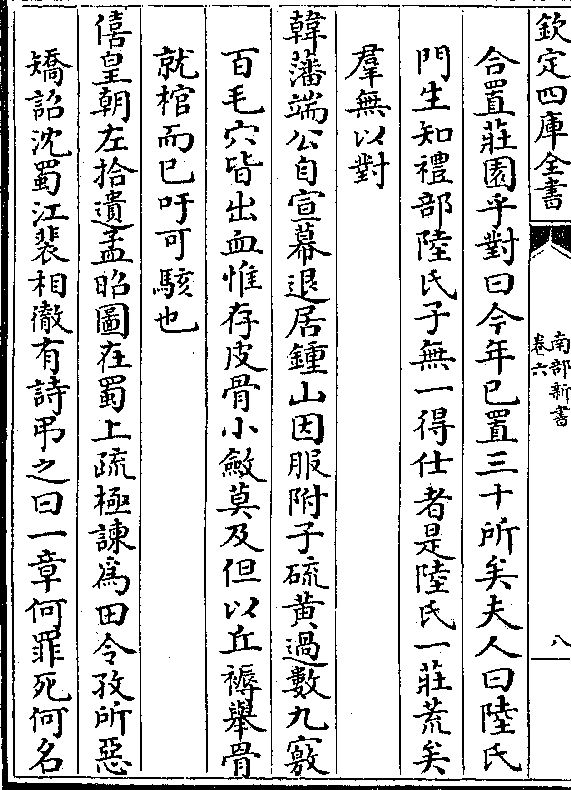 欽定四庫全書
南部新書
卷六
八
合置莊園乎對曰今年已置三十所矣夫人曰陸氏
門生知禮部陸氏子無一得仕者是陸氏一莊荒矣
羣無以對
韓藩端公自宣幕退居鍾山因服附子硫黃過數九竅
百毛穴皆出血惟存皮骨小斂莫及但以丘褥舉骨
就棺而已吁可駭也
僖皇朝左拾遺孟昭圖在蜀上疏極諫為田令孜所惡
矯詔沈蜀江裴相徹有詩弔之曰一章何罪死何名